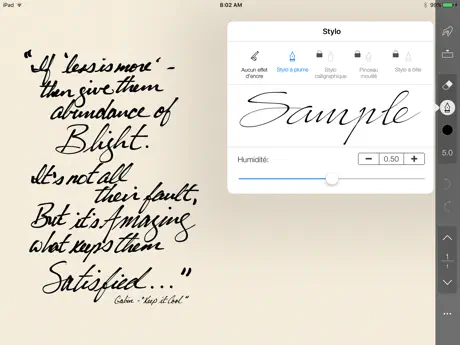 iPad
8:02 AM
99%
"If 'less is more' -
then give them
abundance of
Blight.
It's not all
their fault,
But it's Amazing
what keeps them
Satisfied..."
Gabin - "Keep it Cool"
Stylo
Aucun effet d'encre
Stylo à plume
Stylo calligraphique
Pinceau mouillé
Stylo à bille
Sample
Humidité:
0.50
5.0
1
1